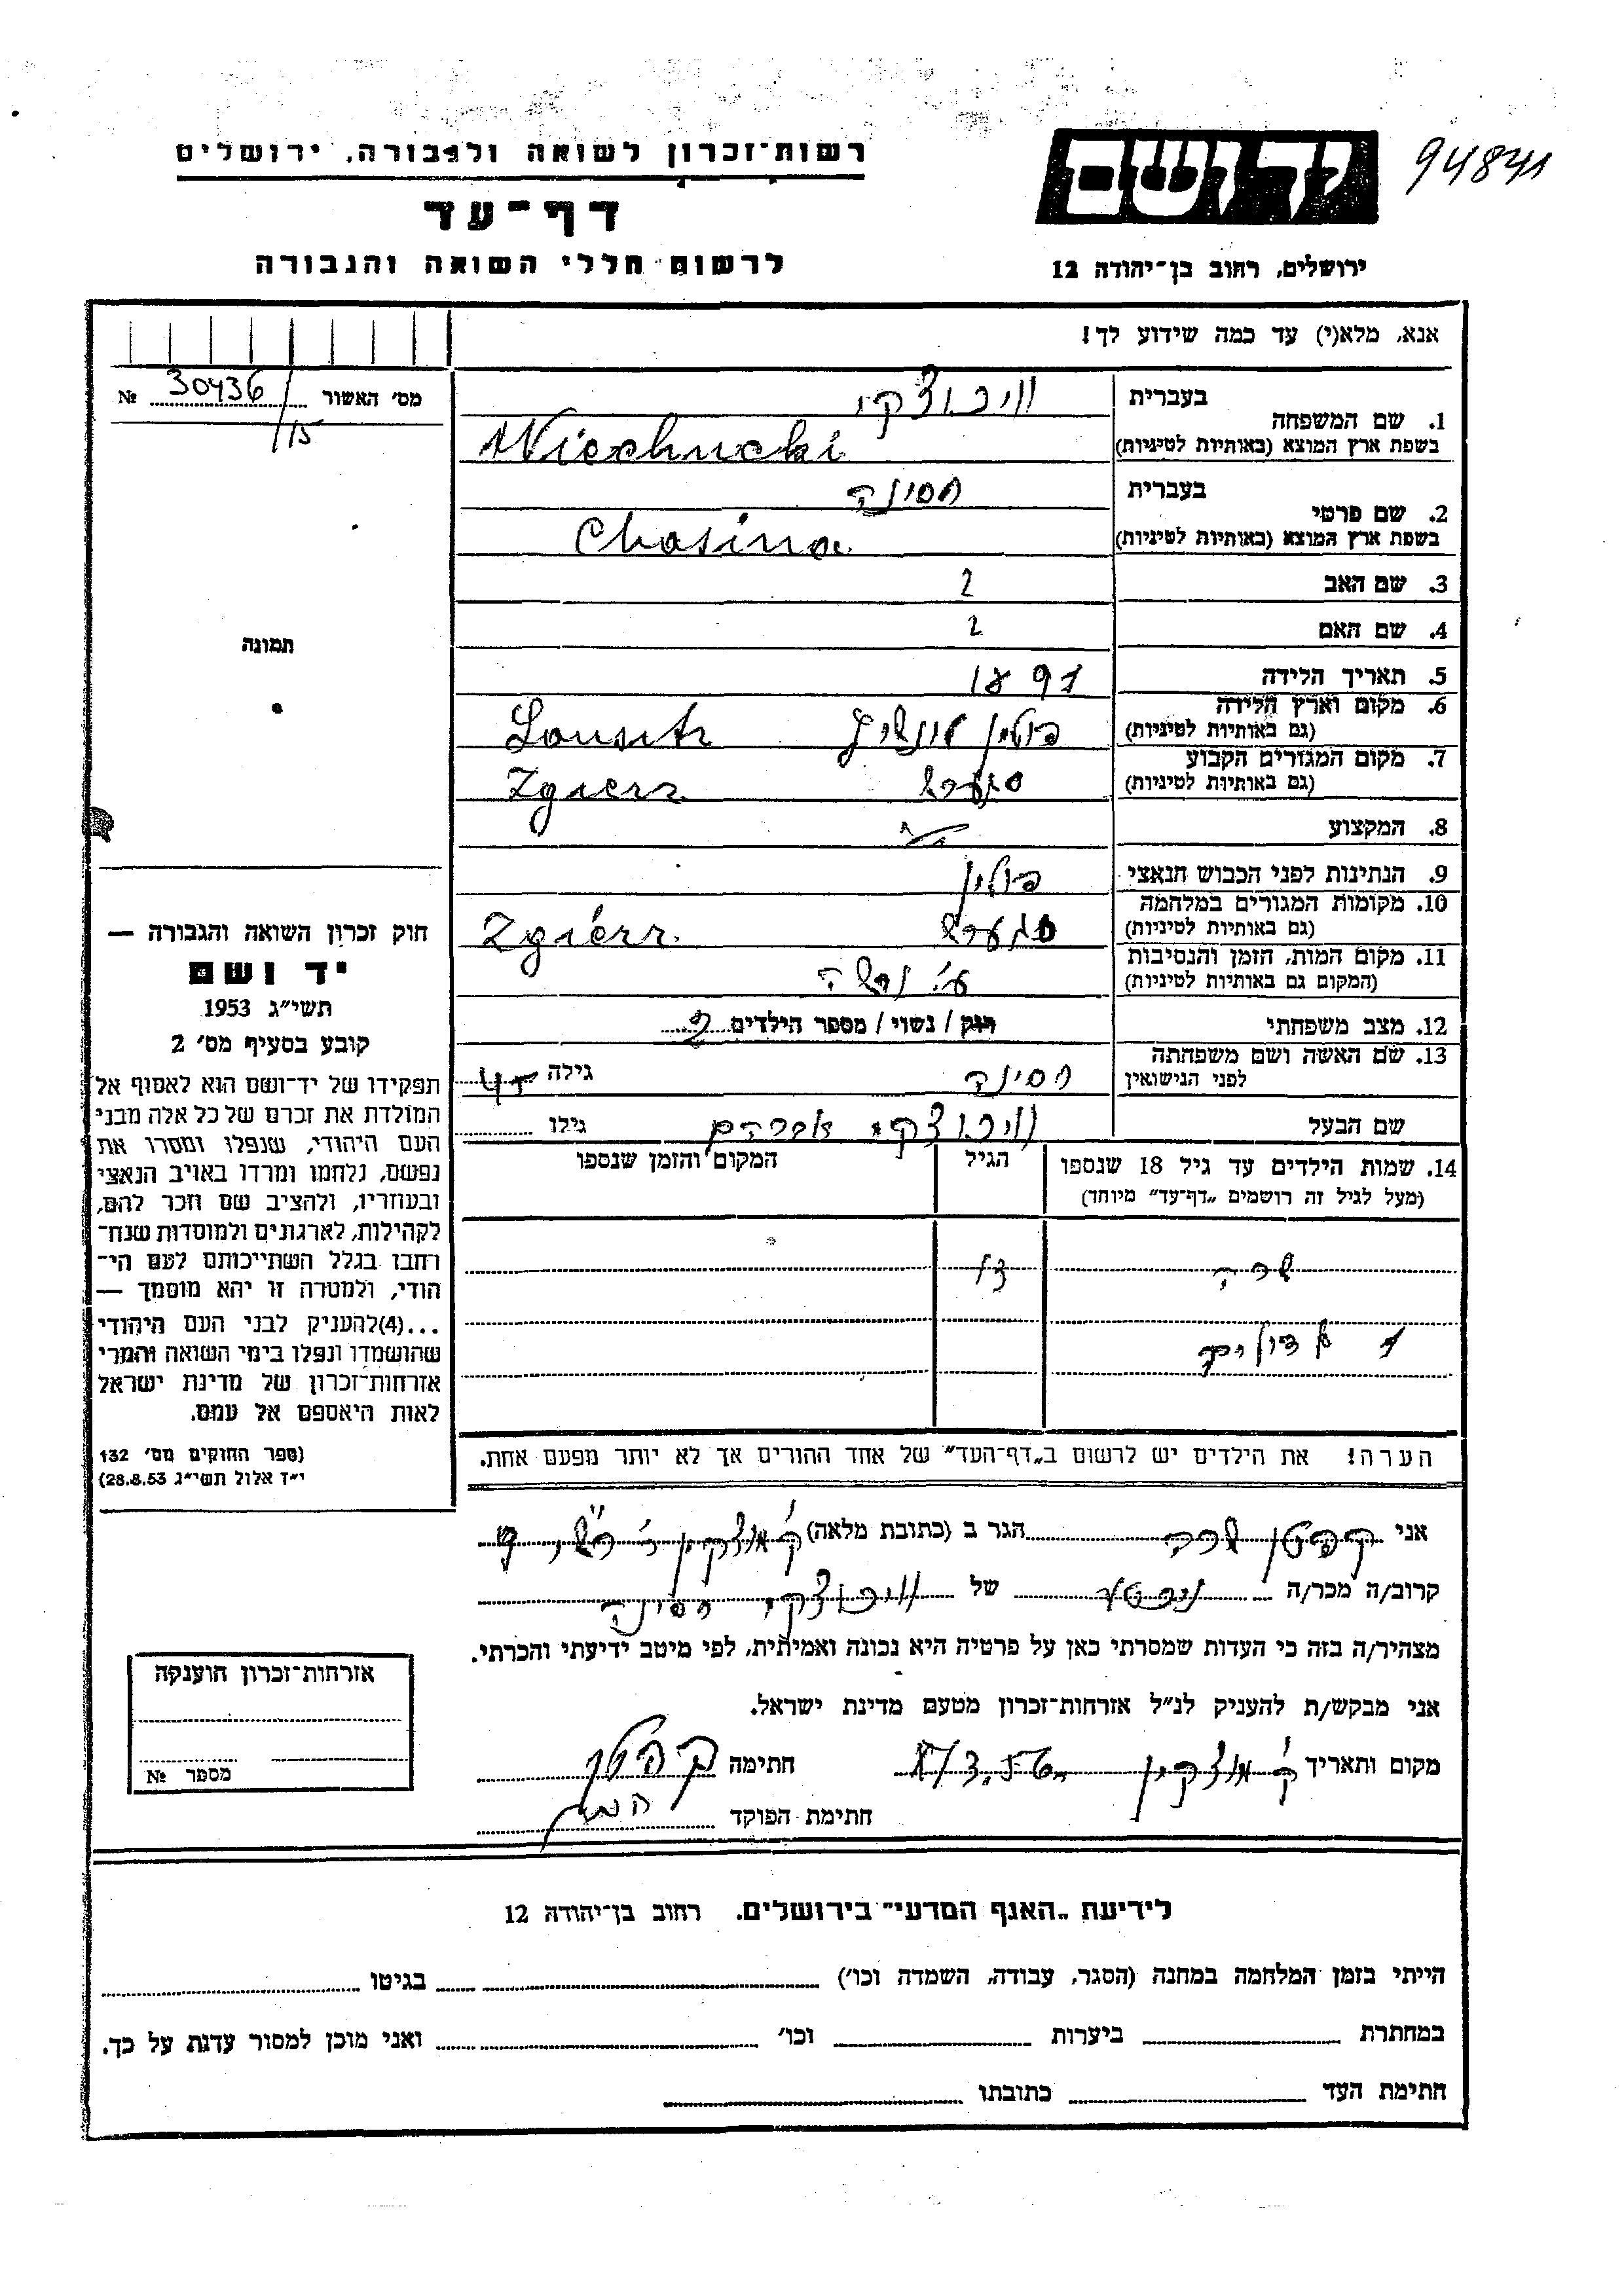 94841
רשות־זכרון לשואה ולגבורה, ירושלים
יד ושם
דף־עד
ירושלים, רחוב בן־יהודה 12
לרשום חללי השואה והגבורה
אנא, מלא(י) עד כמה שידוע לך!
מס׳ האשור 30436/115 №
בעברית וויכוצקי
1. שם המשפחה
בשפת ארץ המוצא (באותיות לטיניות) Wiechucki
בעברית חסינה
2. שם פרטי
בשפת ארץ המוצא (באותיות לטיניות) Chasina
3. שם האב
4. שם האם
5. תאריך הלידה 1891
6. מקום וארץ הלידה
(גם באותיות לטיניות) פולין Lousitz
7. מקום המגורים הקבוע
(גם באותיות לטיניות) Zgierz
8. המקצוע
9. הנתינות לפני הכבוש הנאצי פולין
10. מקומות המגורים במלחמה
(גם באותיות לטיניות) Zgierz
11. מקום המות, הזמן והנסיבות
(המקום גם באותיות לטיניות)
12. מצב משפחתי רווק / נשוי / מספר הילדים 2
13. שם האשה ושם משפחתה
לפני הנישואין חסינה גילה
שם הבעל וויכוצקי אברהם גילו
14. שמות הילדים עד גיל 18 שנספו הגיל המקום והזמן שנספו
(מעל לגיל זה רושמים „דף־עד״ מיוחד)
שרה
הערה! את הילדים יש לרשום ב„דף־העד״ של אחד ההורים אך לא יותר מפעם אחת.
תמונה
חוק זכרון השואה והגבורה —
יד ושם
תשי״ג 1953
קובע בסעיף מס׳ 2
תפקידו של יד־ושם הוא לאסוף אל
המולדת את זכרם של כל אלה מבני
העם היהודי, שנפלו ומסרו את
נפשם, נלחמו ומרדו באויב הנאצי
ובעוזריו, ולהציב שם וזכר להם,
לקהילות, לארגונים ולמוסדות שנח־
רבו בגלל השתייכותם לעם הי־
הודי, ולמטרה זו יהא מוסמך —
...(4)להעניק לבני העם היהודי
שהושמדו ונפלו בימי השואה והמרי
אזרחות־זכרון של מדינת ישראל
לאות היאספם אל עמם.
(ספר החוקים מס׳ 132
י״ד אלול תשי״ג 28.8.53)
אני קפטן שרה הגר ב (כתובת מלאה) ק. מוצקין
קרוב/ה מכר/ה של וויכוצקי חסינה
מצהיר/ה בזה כי העדות שמסרתי כאן על פרטיה היא נכונה ואמיתית, לפי מיטב ידיעתי והכרתי.
אני מבקש/ת להעניק לנ״ל אזרחות־זכרון מטעם מדינת ישראל.
מקום ותאריך ק. מוצקין חתימה קפטן
חתימת הפוקד
אזרחות־זכרון הוענקה
מספר №
לידיעת „האגף המדעי״ בירושלים, רחוב בן־יהודה 12
הייתי בזמן המלחמה במחנה (הסגר, עבודה, השמדה וכו׳) בגיטו
במחתרת ביערות וכו׳ ואני מוכן למסור עדות על כך.
חתימת העד כתובתו